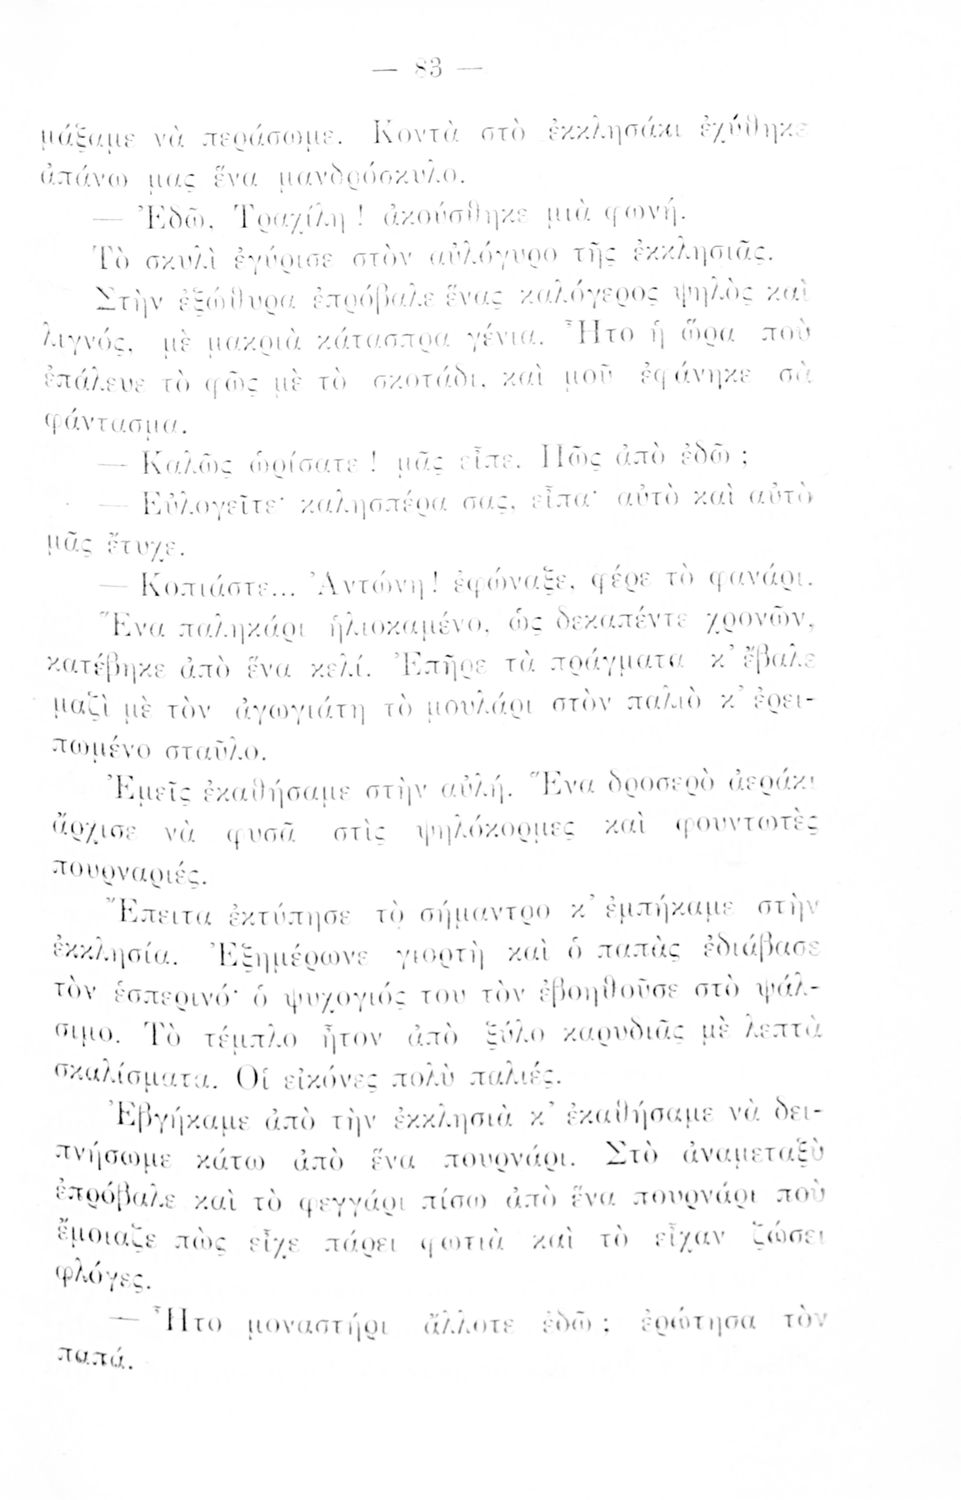 — 83 —
μάξαμε νὰ περάσωμε. Κοντὰ στὸ ἐκκλησάκι ἐχύθηκε
ἀπάνω μας ἕνα μανδρόσκυλο.
— Ἐδῶ, Τραχίλη ! ἀκούσθηκε μιὰ φωνή.
Τὸ σκυλὶ ἐγύρισε στὸν αὐλόγυρο τῆς ἐκκλησιᾶς.
Στὴν ἐξώθυρα ἐπρόβαλε ἕνας καλόγερος ψηλὸς καὶ
λιγνός, μὲ μακριὰ κάτασπρα γένια. Ἦτο ἡ ὥρα ποὺ
ἐπάλευε τὸ φῶς μὲ τὸ σκοτάδι, καὶ μοῦ ἐφάνηκε σὰ
φάντασμα.
— Καλῶς ὡρίσατε ! μᾶς εἶπε. Πῶς ἀπὸ ἐδῶ ;
— Εὐλογεῖτε· καλησπέρα σας, εἶπα· αὐτὸ καὶ αὐτὸ
μᾶς ἔτυχε.
— Κοπιάστε... Ἀντώνη! ἐφώναξε, φέρε τὸ φανάρι.
Ἕνα παληκάρι ἡλιοκαμένο, ὡς δεκαπέντε χρονῶν,
κατέβηκε ἀπὸ ἕνα κελί. Ἐπῆρε τὰ πράγματα κ᾿ ἔβαλε
μαζὶ μὲ τὸν ἀγωγιάτη τὸ μουλάρι στὸν παλιὸ κ᾿ ἐρει-
πωμένο σταῦλο.
Ἐμεῖς ἐκαθήσαμε στὴν αὐλή. Ἕνα δροσερὸ ἀεράκι
ἄρχισε νὰ φυσᾶ στὶς ψηλόκορμες καὶ φουντωτὲς
πουρναριές.
Ἔπειτα ἐκτύπησε τὸ σήμαντρο κ᾿ ἐμπήκαμε στὴν
ἐκκλησία. Ἐξημέρωνε γιορτὴ καὶ ὁ παπὰς ἐδιάβασε
τὸν ἑσπερινό· ὁ ψυχογιός του τὸν ἐβοηθοῦσε στὸ ψάλ-
σιμο. Τὸ τέμπλο ἦτον ἀπὸ ξύλο καρυδιᾶς μὲ λεπτὰ
σκαλίσματα. Οἱ εἰκόνες πολὺ παλιές.
Ἐβγήκαμε ἀπὸ τὴν ἐκκλησιὰ κ᾿ ἐκαθήσαμε νὰ δει-
πνήσωμε κάτω ἀπὸ ἕνα πουρνάρι. Στὸ ἀναμεταξὺ
ἐπρόβαλε καὶ τὸ φεγγάρι πίσω ἀπὸ ἕνα πουρνάρι ποὺ
ἔμοιαζε πὼς εἶχε πάρει φωτιὰ καὶ τὸ εἶχαν ζώσει
φλόγες.
— Ἦτο μοναστήρι ἄλλοτε ἐδῶ ; ἐρώτησα τὸν
παπά.